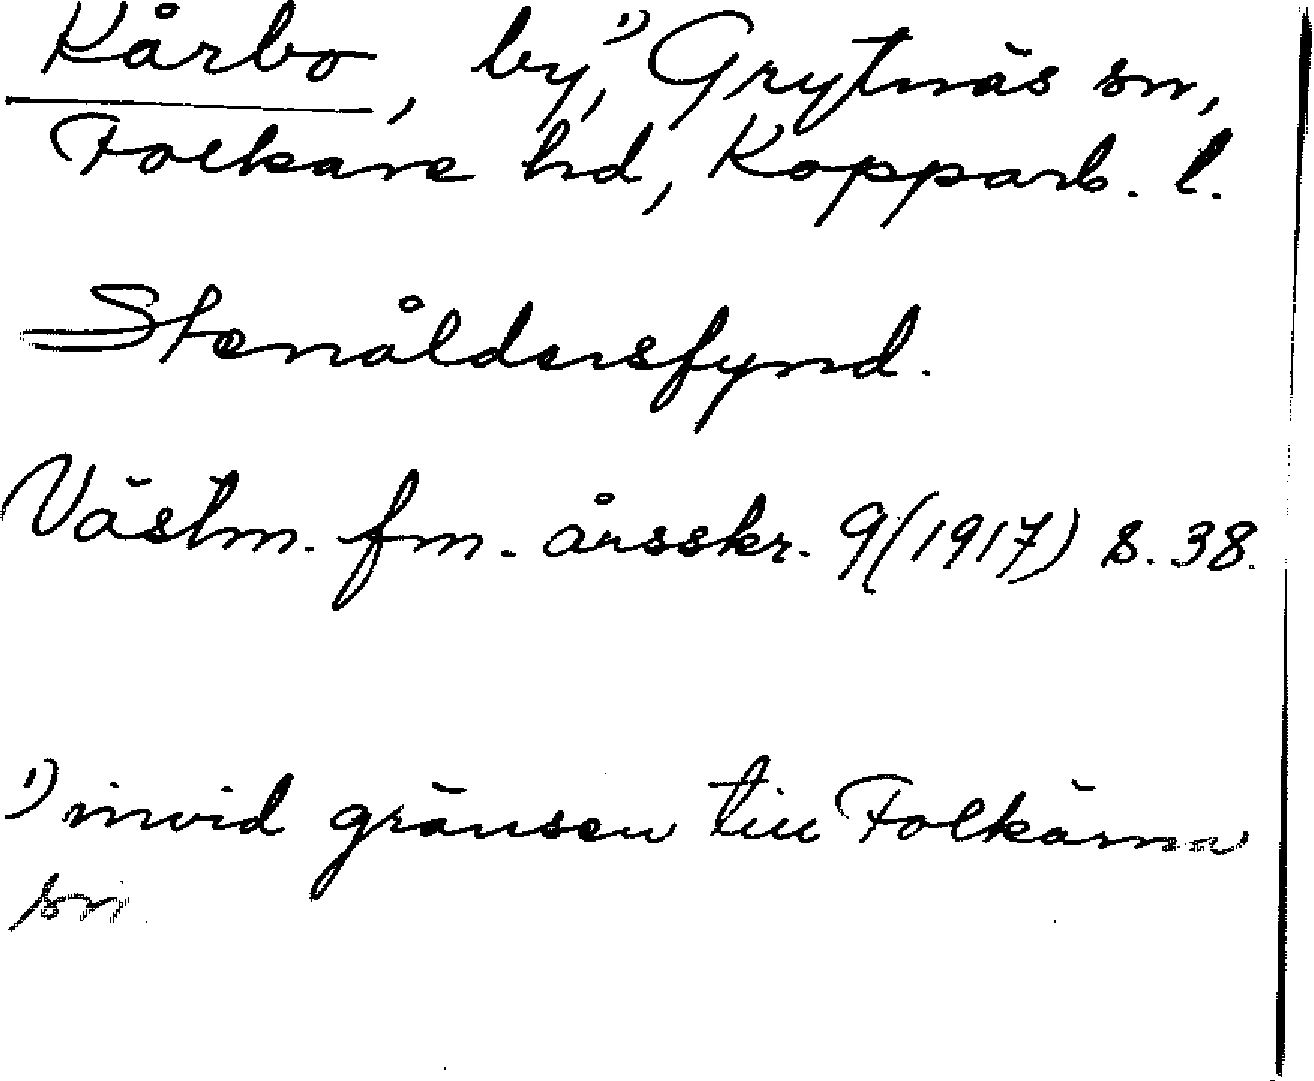 Kårbo, by,¹⁾ Grytnäs sn,
Folkare hd, Kopparb. l.
Stenåldersfynd.
Västm. fm. årsskr. 9(1917) s. 38.
¹⁾ invid gränsen till Folkärna
sn